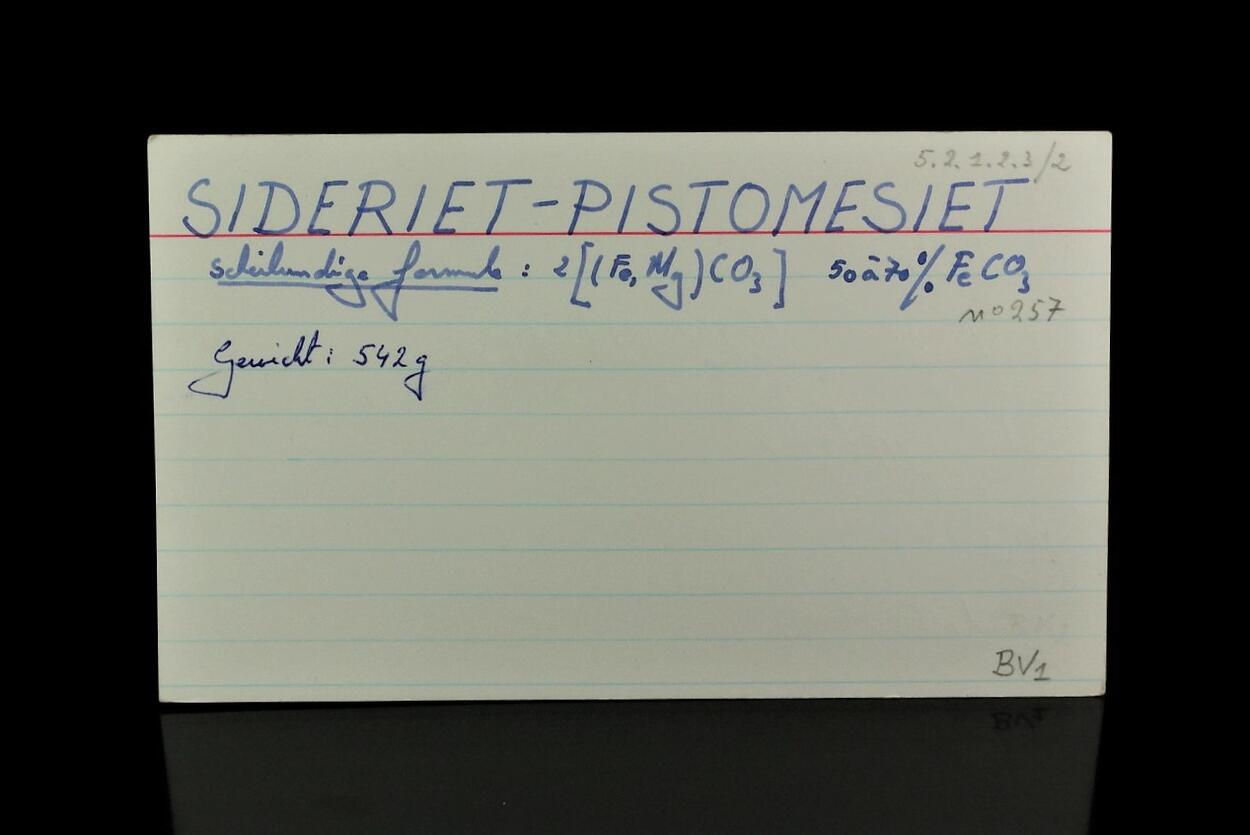 5.2.1.2.3/2
SIDERIET-PISTOMESIET
scheikundige formule : 2[(Fe, Mg)CO₃] 50 à 70% FeCO₃
n° 257
Gewicht: 542g
BV1